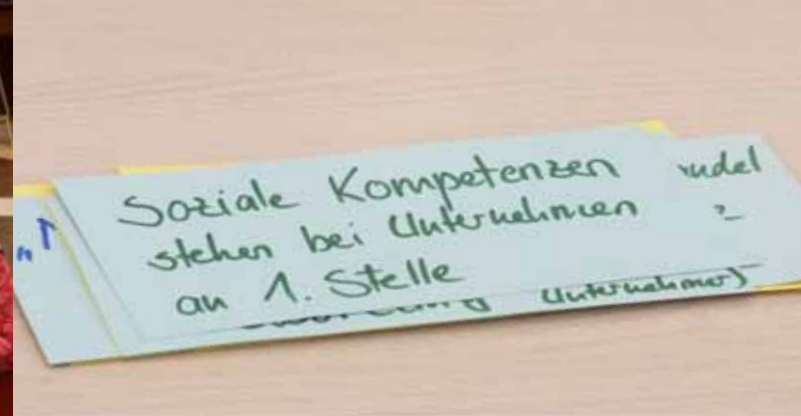 Soziale Kompetenzen
stehen bei Unternehmen
an 1. Stelle
Unternehmer)